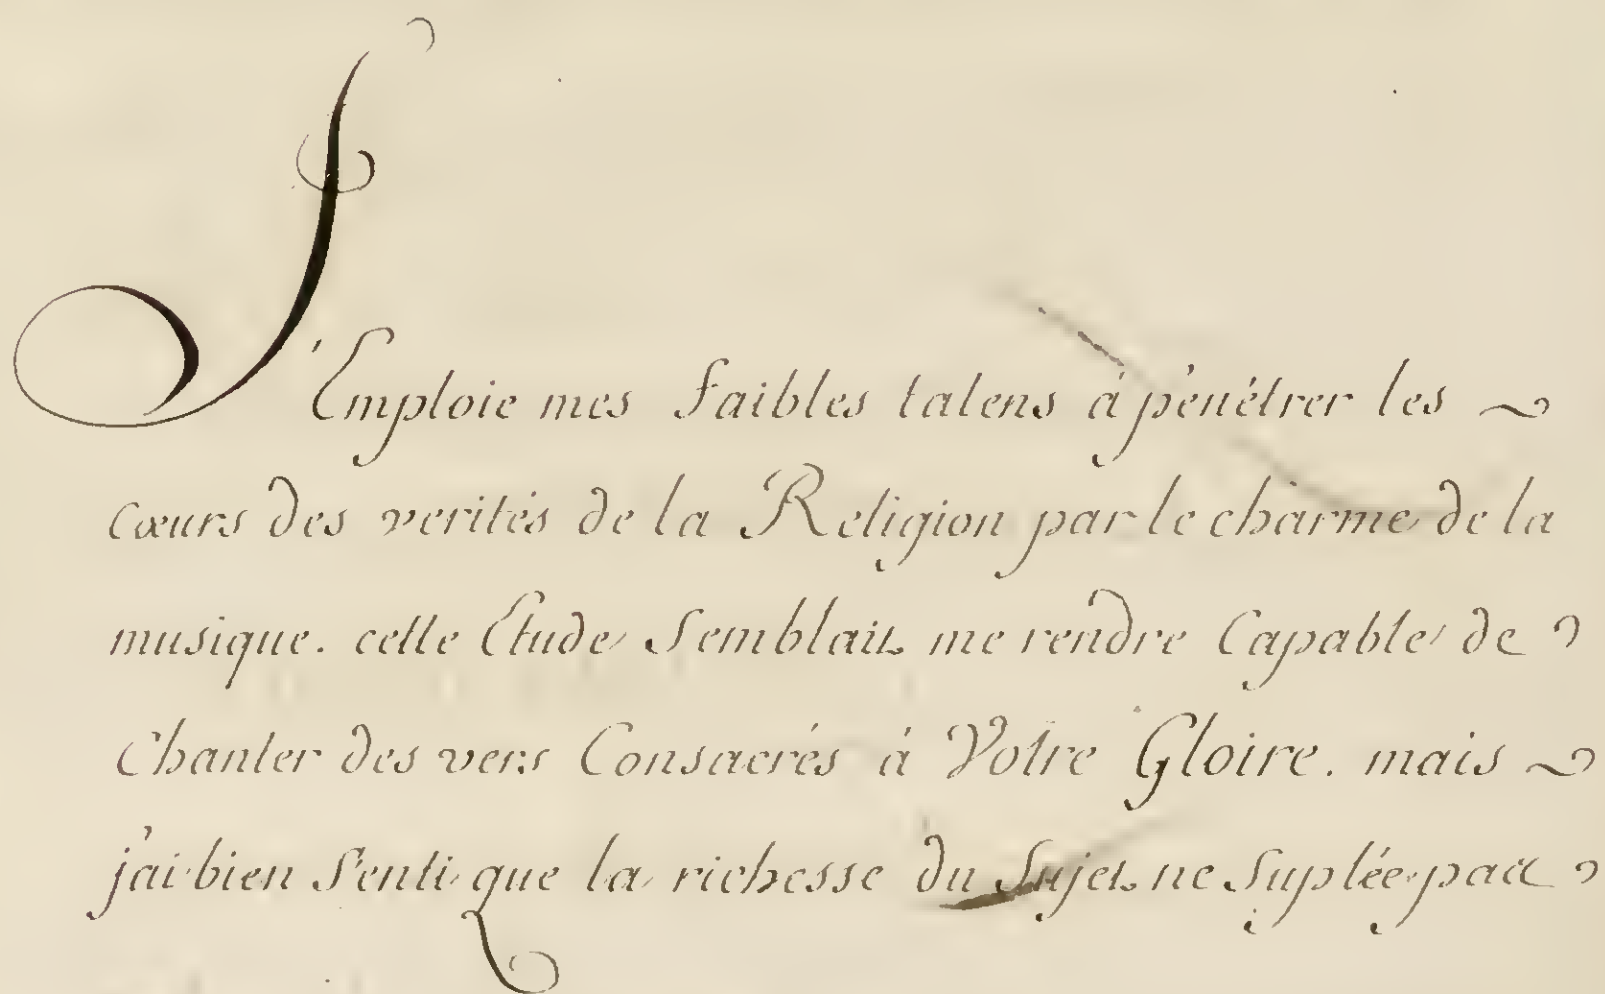 J'Emploie mes faibles talens à pénétrer les
cœurs des verités de la Religion par le charme de la
musique. cette Etude Semblait me rendre Capable de
Chanter des vers Consacrés à Votre Gloire. mais
j'ai bien Senti que la richesse du Sujet ne Suplée pas